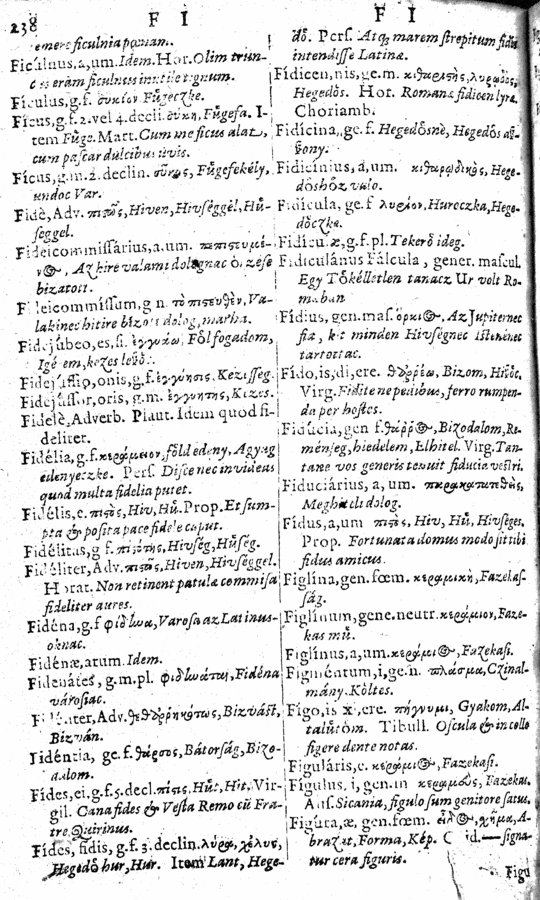 238 F I
emere ficulnia poenam.
Ficúlnus,a,um. Idem. Hor. Olim trun-
cus eram ficulnus inutile lignum.
Fículus,g.f. συκίον Fűgeczke.
Fícus,g.f.2.vel 4.decli. συκῆ, Fűgefa. I-
tem Fűge. Mart. Cum me ficus alat,
cùm pascar dulcibus uvis.
Fícus,g.m.2.declin. σῦκος, Fűgefekély,
undoc Var.
Fidè,Adv. πιστῶς, Hiven, Hivséggel, Hű-
séggel.
Fideicommissárius,a,um. πεπιστευμέ-
νος, Az kire valami dolognac
bizatott.
Fideicommíssum,g n. τὸ πιστευθὲν, Va-
lakinec hitire bizott dolog, marha.
Fidejúbeo,es,si. ἐγγυάω, Fől fogadom,
Igérem, kezes leszc.
Fidejússio,onis,g.f. ἐγγύησις. Kezesség.
Fidejússor,oris,g.m. ἐγγυητης, Kezes.
Fidelè, Adverb. Plaut. Idem quod fi-
deliter.
Fidélia,g.f. κεράμειον, főld edény, Agyag
edenyeczke. Pers. Disce nec invideas
quod multa fidelia putet.
Fidélis,e. πιστὸς, Hiv, Hű. Prop. Et sum-
pta & posita pace fidele caput.
Fidélitas,g f. πιστότης, Hivség, Hűség.
Fidéliter, Adv. πιστῶς, Hiven, Hivséggel.
Horat. Non retinent patulæ commissa
fideliter aures.
Fidéna,g.f φιδήνα, Varosa az Latinus-
oknac.
Fidénæ,arum. Idem.
Fidenátes, g.m.pl. φιδηνάται, Fidéna
városiac.
Fidénter, Adv. τεθαῤῥηκότως, Bizvást,
Bizván.
Fidéntia, ge.f. θάρσος, Bátorság, Bizo-
dalom.
Fídes,ei,g.f.5.decl. πίστις. Hűt, Hit. Vir-
gil. Cana fides & Vesta Remo cū Fra-
tre Quirinus.
Fídes, fidis, g.f. 3. declin. λύρα, χέλυς,
Hegedő hur, Hur. Item Lant, Hege-
F I
dő. Pers. Atq; marem strepitum fidis
intendisse Latinæ.
Fídicen,nis,ge.m. κιθαριστής, λυρῳδὸς,
Hegedős. Hor. Romanæ fidicen lyræ.
Choriamb.
Fidícina, ge.f. Hegedősnè, Hegedős asz-
szony.
Fidicínius, a, um. κιθαρῳδικὸς, Hege-
dőshőz valo.
Fidícula, ge.f λυρίον, Hureczka, Hege-
dőczke.
Fidículæ,g.f.pl. Tekerő ideg.
Fidiculánus Falcula, gener. mascul.
Egy Tőkélletlen tanacz Ur volt Ro-
maban
Fídius, gen.mas. ὅρκιος, Az Jupiternec
fia, kit minden Hivségnec Istenenec
tartottac.
Fído,is,di,ere. θαῤῥέω, Bizom, Hiszőc.
Virg. Fidite ne pedibus, ferro rumpen-
da per hostes.
Fidúcia,gen f. θάρσος, Bizodalom, Re-
ménség, hiedelem, Elhitel. Virg. Tan-
tane vos generis tenuit fiducia vestri.
Fiduciárius, a, um. παρακαταπιθεὶς,
Meghitelt dolog.
Fídus,a,um πιστὸς, Hiv, Hű, Hivséges.
Prop. Fortunata domus modo sit tibi
fidus amicus.
Figlína, gen. fœm. κεραμικὴ, Fazekas-
ság.
Figlínum, gene.neutr. κεράμιον, Faze-
kas mű.
Figlínus,a,um. κεράμιος, Fazekasi.
Figméntum, i,ge.n. πλάσμα, Czinal-
mány. Költes.
Fígo,is xi,ere. πήγνυμι, Gyakom, Al-
talűtőm. Tibull. Oscula & in collo
figere dente notas.
Figuláris,e. κεράμιος, Fazekasi.
Fígulus, i, gen.m κεραμεὺς, Fazekas.
Aus. Sicania, figulo sum genitore satus.
Figúra, æ, gen.fœm. εἶδος, χῆμα, A-
brazat, Forma, Kép. Ovid. — signa-
tur cera figuris.
Figu